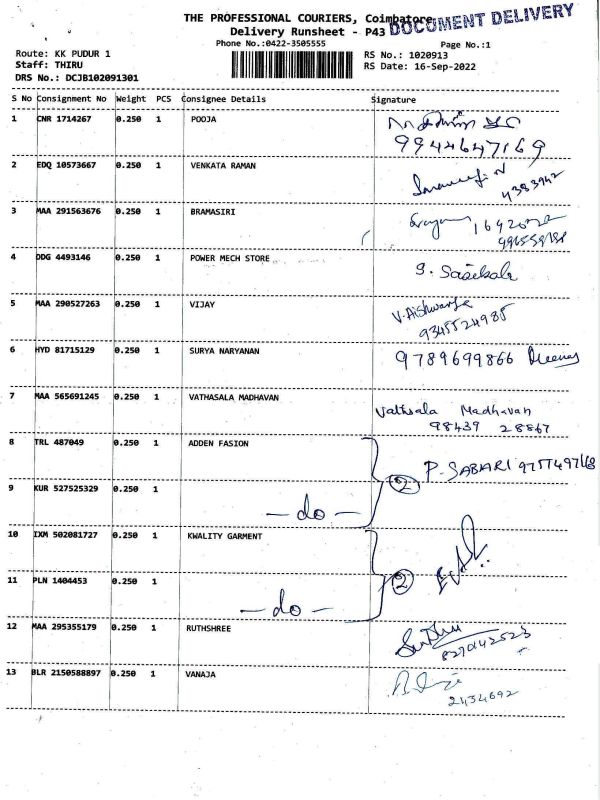 THE PROFESSIONAL COURIERS, Coimbatore
DOCUMENT DELIVERY
Delivery Runsheet - P43
Phone No.:0422-3505555
Page No.:1
Route: KK PUDUR 1
RS No.: 1020913
Staff: THIRU
RS Date: 16-Sep-2022
DRS No.: DCJB102091301
S No Consignment No Weight PCS Consignee Details Signature
1 CNR 1714267 0.250 1 POOJA
9944647169
2 EDQ 10573667 0.250 1 VENKATA RAMAN
4383942
3 MAA 291563676 0.250 1 BRAMASIRI
4 DDG 4493146 0.250 1 POWER MECH STORE
S. Sasikala
5 MAA 290527263 0.250 1 VIJAY
V. Aishwarya
9345524985
6 HYD 81715129 0.250 1 SURYA NARYANAN
9789699866
7 MAA 565691245 0.250 1 VATHASALA MADHAVAN
Vathsala Madhavan
98439 28867
8 TRL 487049 0.250 1 ADDEN FASION
2 P. SABARI
9 KUR 527525329 0.250 1
- do -
10 IXM 502081727 0.250 1 KWALITY GARMENT
2
11 PLN 1404453 0.250 1
- do -
12 MAA 295355179 0.250 1 RUTHSHREE
8270142523
13 BLR 2150588897 0.250 1 VANAJA
2434692